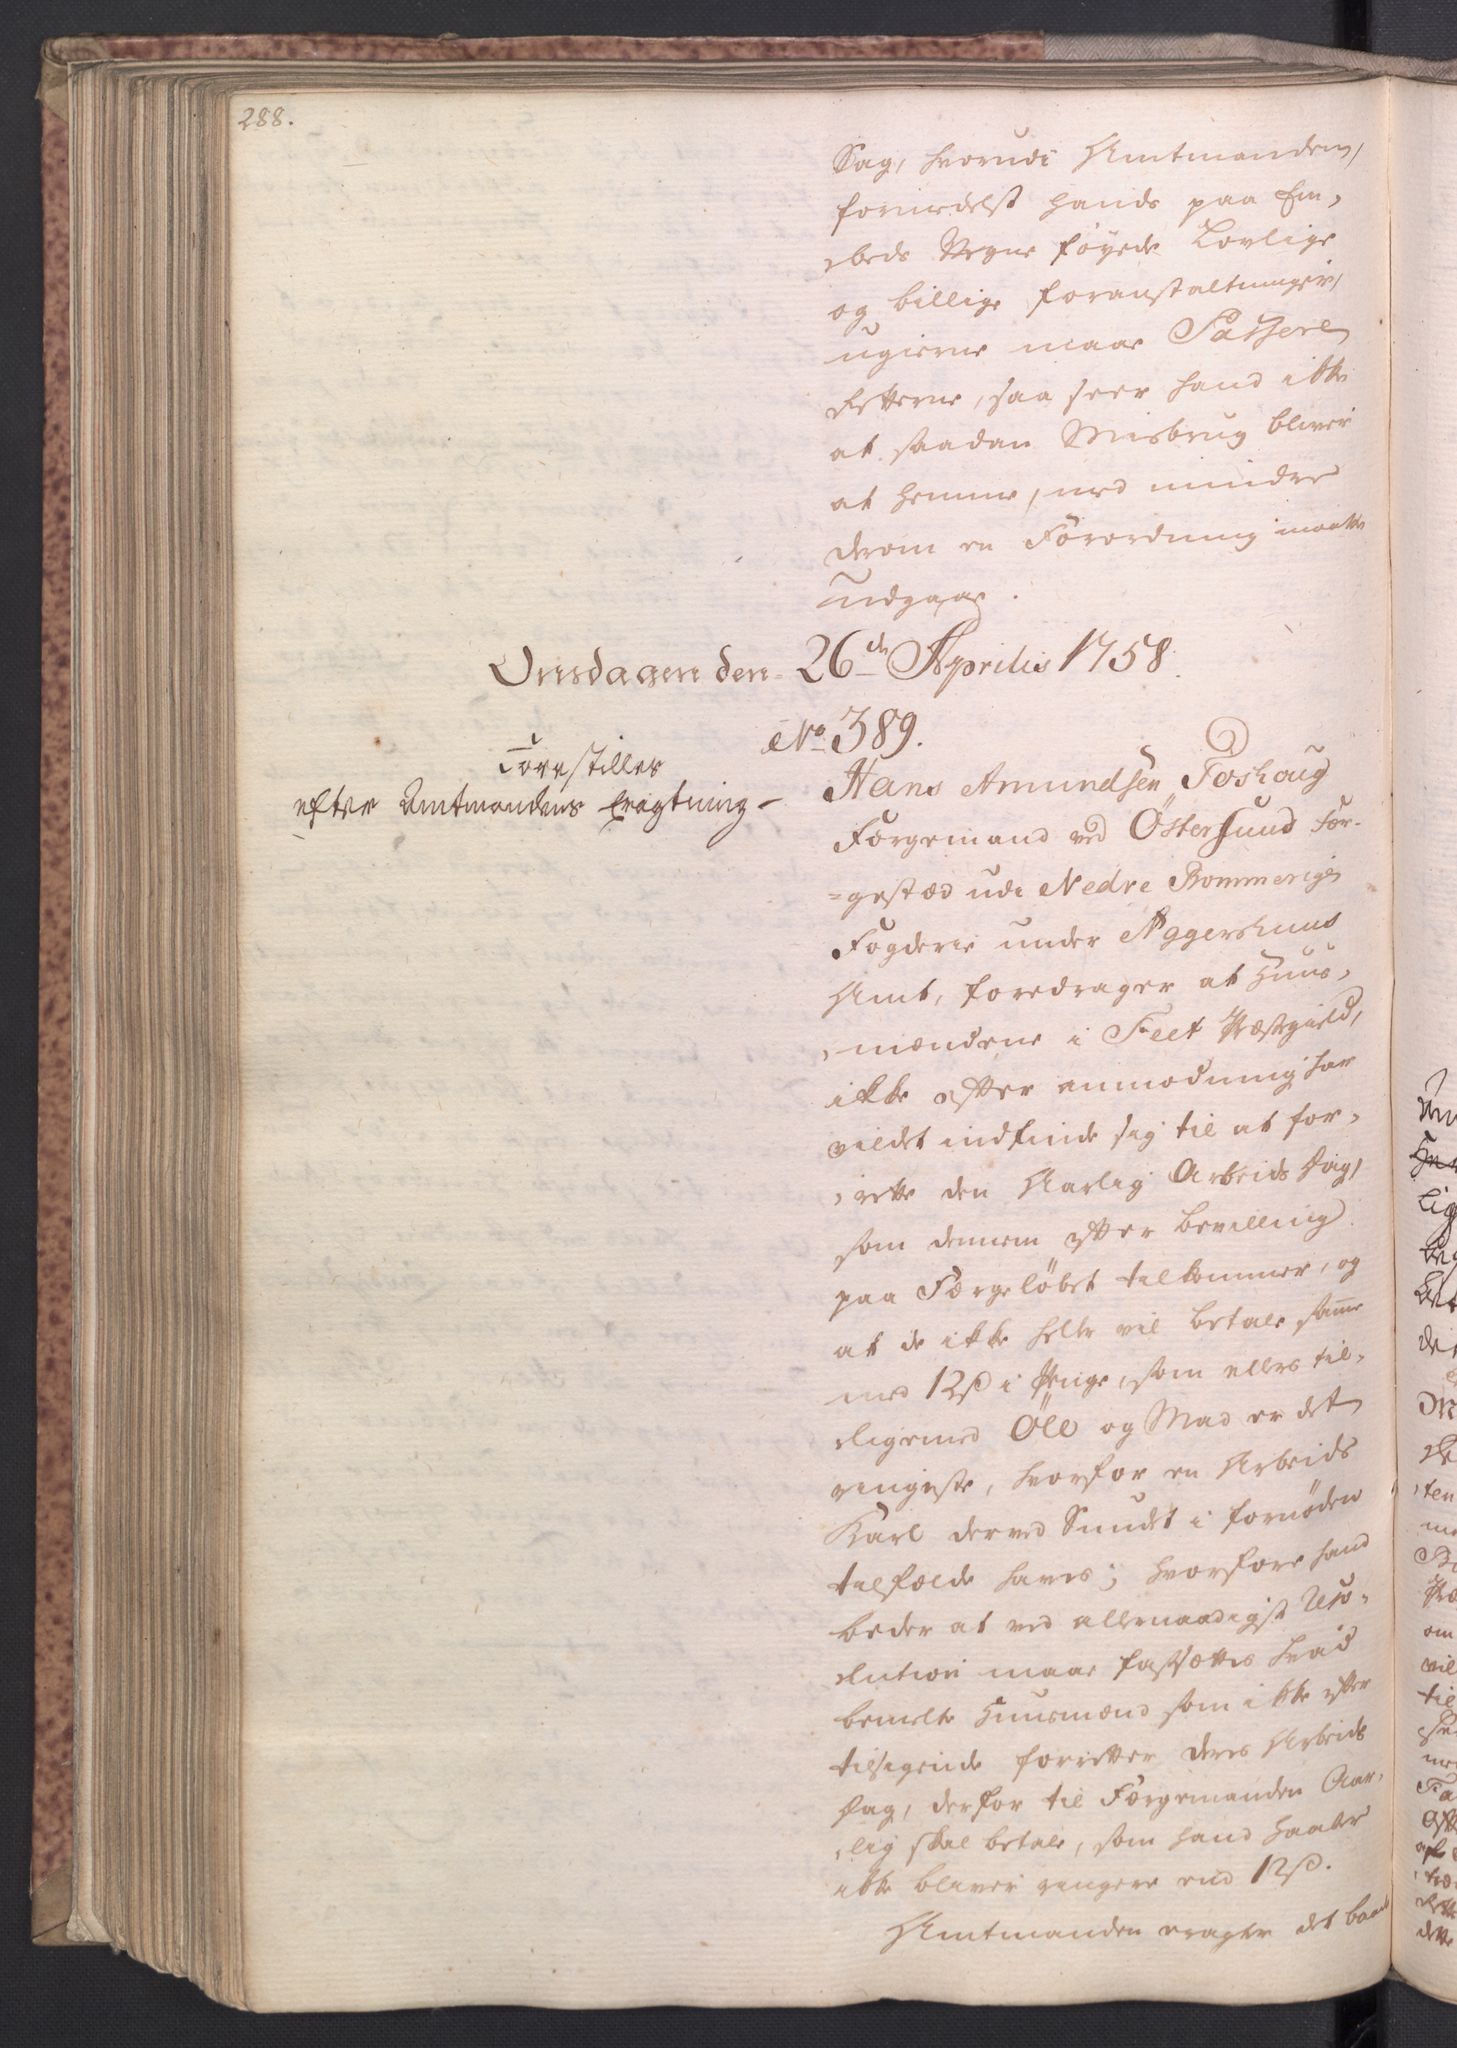 288.
Sag, hvorudi Amtmanden,
formedelst hands paa Em-
beds Vegne føyede Lovlige
og billige foranstaltninger,
ugierne maae Passere
Retterne, saa seer hand ikke
at saadan Misbrug bliver
at hemme, med mindre
derom en Forordning maatte
udgaae.
Onsdagen den 26de Aprilis 1758.
No 389.
Forestilles
efter Amtmandens Eragtning
Hans Amundsen Foshoug
Færgemand ved Östersund Fær-
=gestæd udi Nedre Rommerige
Fogderie under Aggershuus
Amt, foredrager at Huus-
mændene i Feet Præstegield,
ikke efter anmodning har
vildet indfinde sig til at for-
rette den Aarlig Arbeids Dag,
som dennem efter bevilling
paa Færgeløbet tilkommer, og
at de ikke heller vil betale samme
med 12 ß i Penge, som ellers til-
ligemed Öll og Mad er det
ringeste, hvorfor en Arbeids
Karl derved Sundet i fornøden
tilfælde haves; hvorfore hand
beder at ved allernaadigst Reso-
lution maae fastsættes hvad
bemelte Huusmænd som ikke efter
tilsigende forretter deres Arbeids
Dag, derfor til Færgemanden Aar-
lig skal betale, som hand haaber
ikke bliver ringere end 12 ß.
Amtmanden eragter det baade